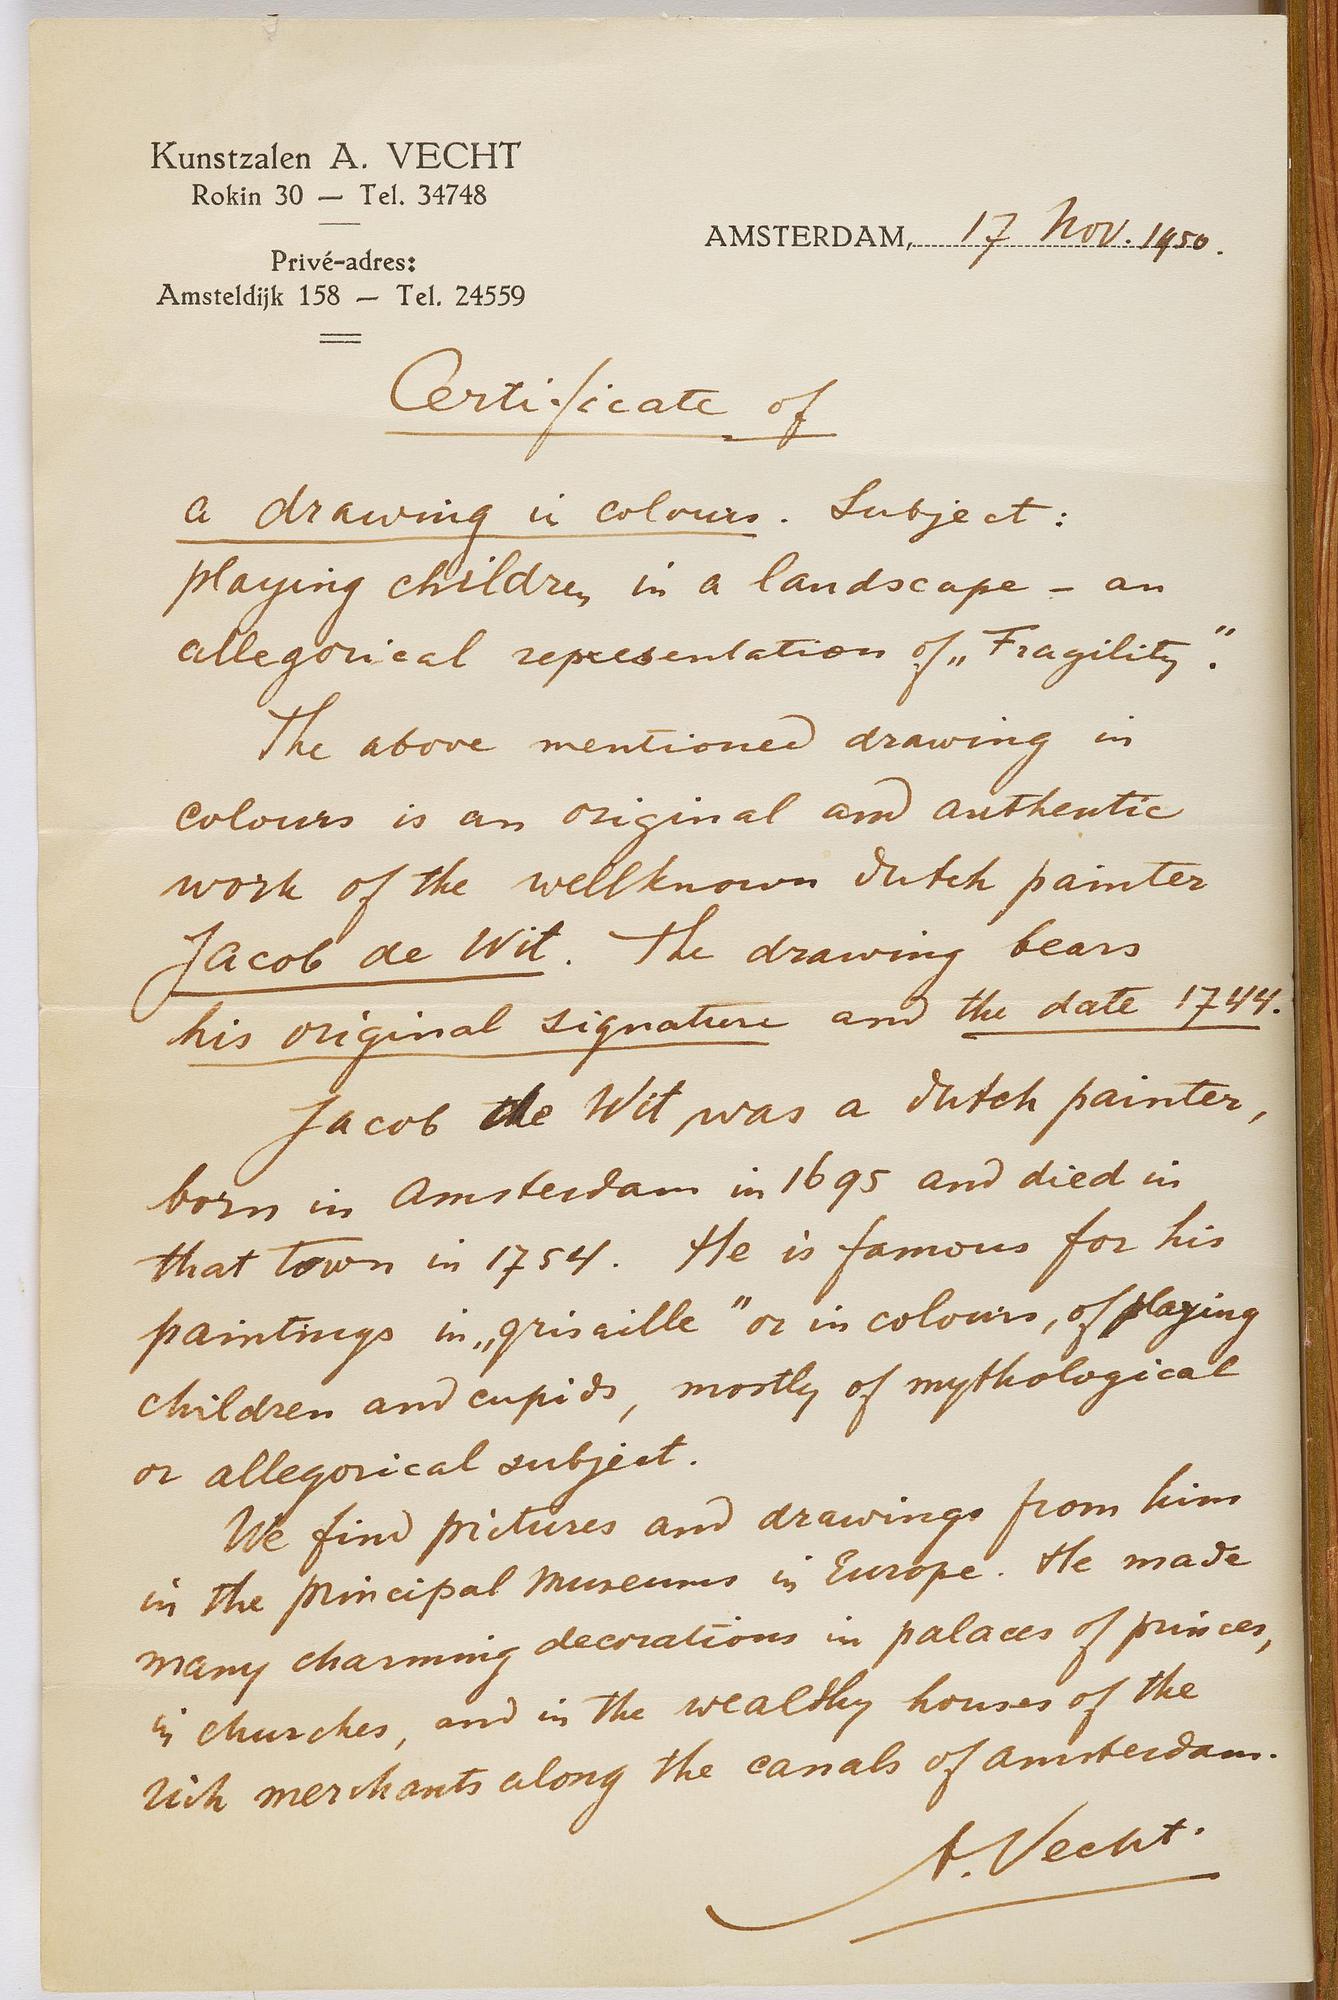 Kunstzalen A. VECHT
Rokin 30 — Tel. 34748
Privé-adres:
Amsteldijk 158 — Tel. 24559
AMSTERDAM, 17 Nov. 1950.
Certificate of
a drawing in colours. Subject:
playing children in a landscape - an
allegorical representation of „Fragility".
The above mentioned drawing in
colours is an original and authentic
work of the wellknown dutch painter
Jacob de Wit. The drawing bears
his original signature and the date 1744.
Jacob de Wit was a dutch painter,
born in Amsterdam in 1695 and died in
that town in 1754. He is famous for his
paintings in „grisaille" or in colours, of playing
children and cupids, mostly of mythological
or allegorical subject.
We find pictures and drawings from him
in the principal Museums in Europe. He made
many charming decorations in palaces of princes,
in churches, and in the wealdhy houses of the
rich merchants along the canals of Amsterdam.
A. Vecht.